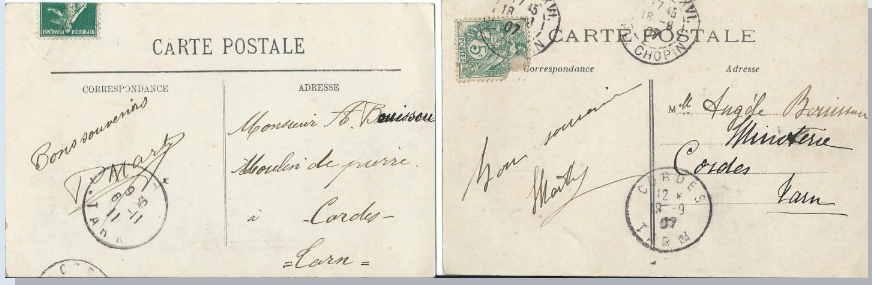 CARTE POSTALE
CORRESPONDANCE
ADRESSE
Bons souvenirs
Marty
Monsieur A. Bouisson
Moulin de pierre
à
-Cordes-
=Tarn=
TARN
CARTE POSTALE
Correspondance
Adresse
R. CHOPIN
5
Bon souvenir
Marty
Mlle Angèle Bouisson
Minoterie
Cordes
Tarn
CORDES
12 *
8 -9
07
TARN